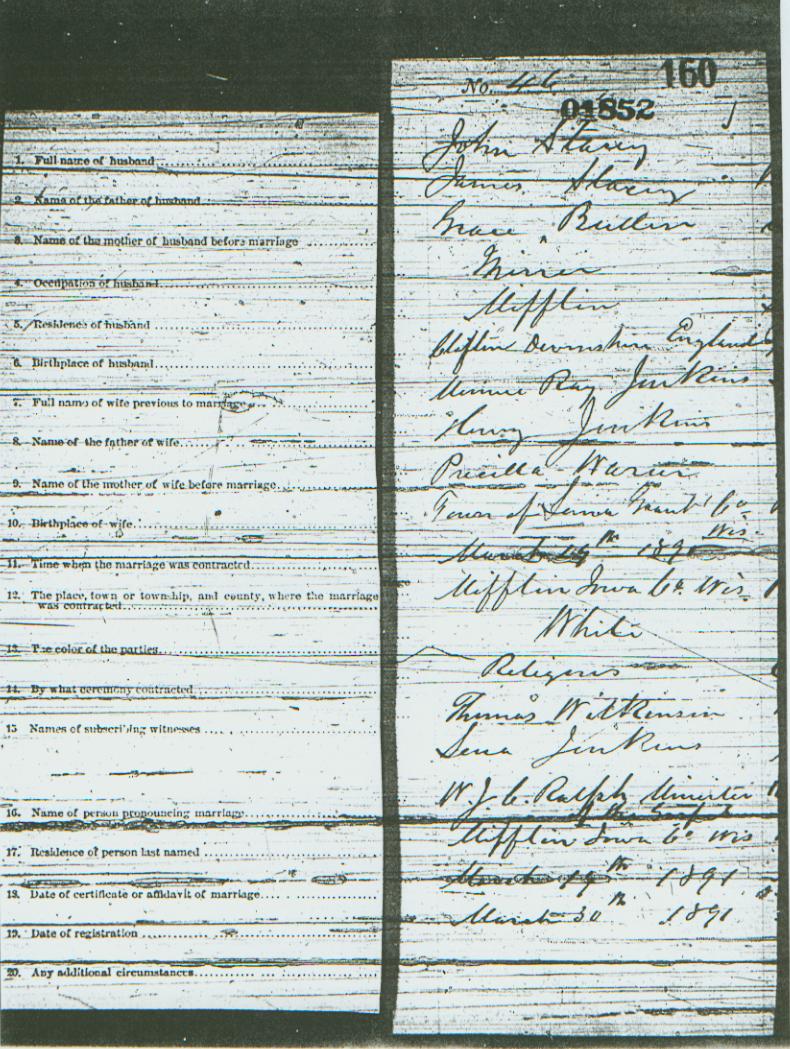 No. 46 160
01852
1. Full name of husband John Stacey
2. Name of the father of husband James Stacey
3. Name of the mother of husband before marriage Grace Butler
4. Occupation of husband Miner
5. Residence of husband Mifflin
6. Birthplace of husband Devonshire England
7. Full name of wife previous to marriage Minnie Ray Jenkins
8. Name of the father of wife Henry Jenkins
9. Name of the mother of wife before marriage Pricilla
10. Birthplace of wife Town of Grant Co
Wis
11. Time when the marriage was contracted March 19th 1891
12. The place, town or township, and county, where the marriage
was contracted Mifflin Iowa Co. Wis
13. The color of the parties White
14. By what ceremony contracted Religious
15 Names of subscribing witnesses Thomas Wilkinson
Lena Jenkins
16. Name of person pronouncing marriage W. J. C. Ralph Minister
17. Residence of person last named Mifflin Iowa Co Wis
18. Date of certificate or affidavit of marriage March 19th 1891
19. Date of registration March 30th 1891
20. Any additional circumstances